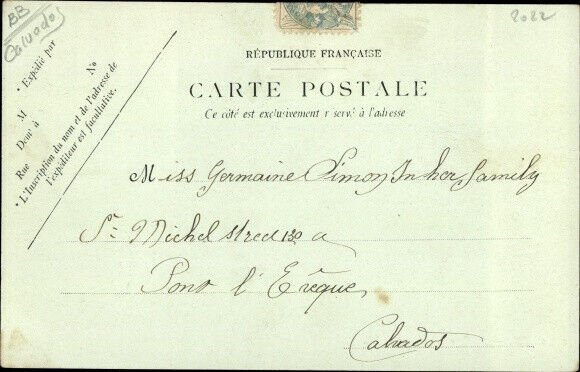 BB
Calvados
2022
RÉPUBLIQUE FRANÇAISE
CARTE POSTALE
Ce côté est exclusivement r serv. à l'adresse
* Expédié par
M
Demt à
Rue No
* L'Inscription du nom et de l'adresse de
l'expéditeur est facultative.
Miss Germaine Simon In her family
St Michel street 130 a
Pont l'Evêque
Calvados